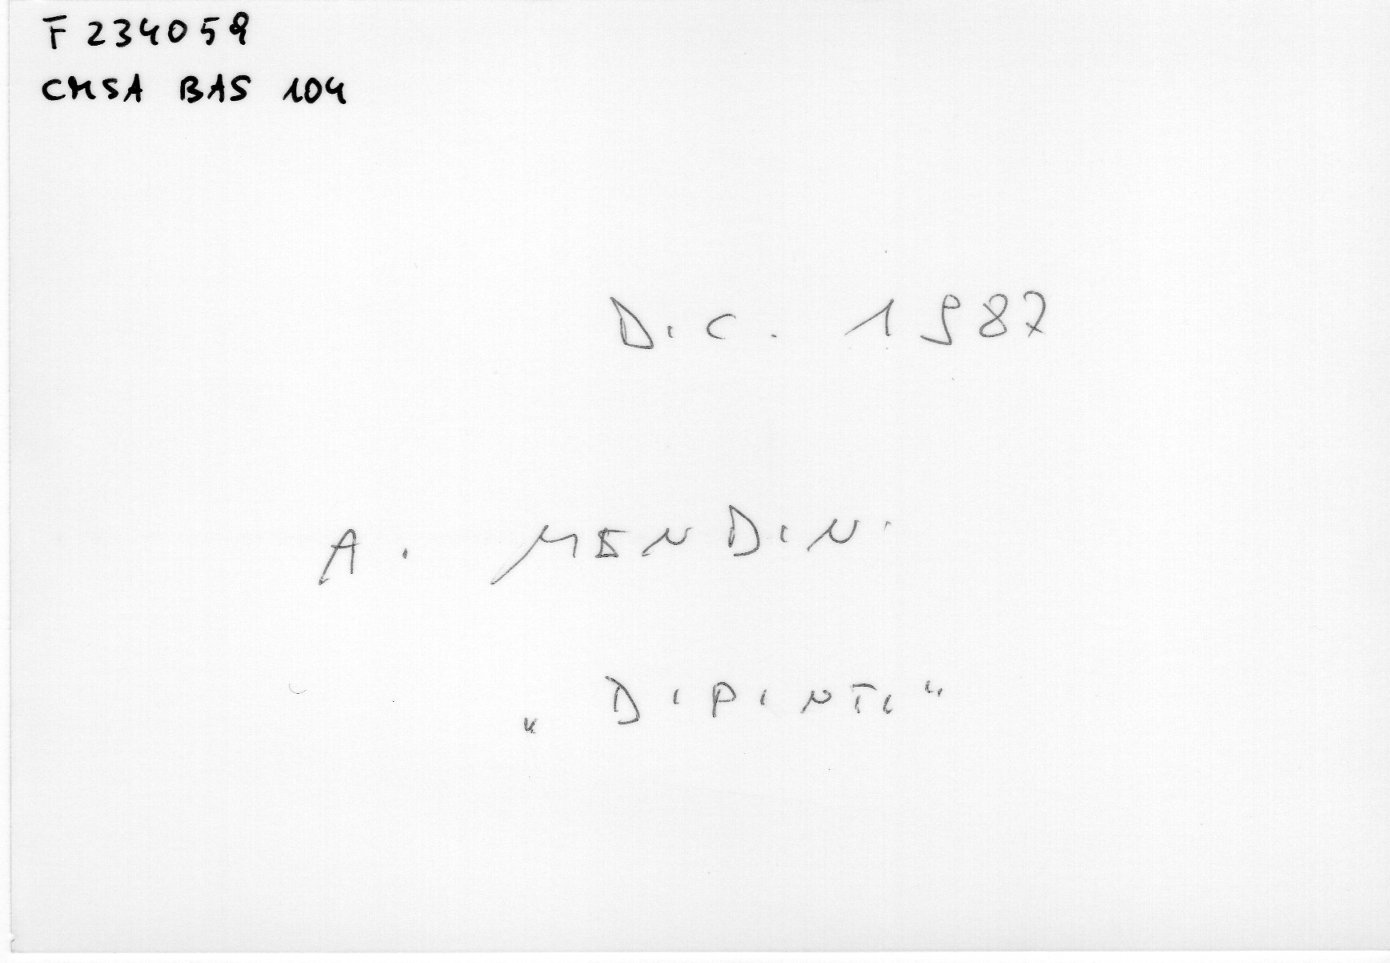 F 234059
CMSA BAS 104
DIC. 1987
A. MENDINI
"DIPINTI"